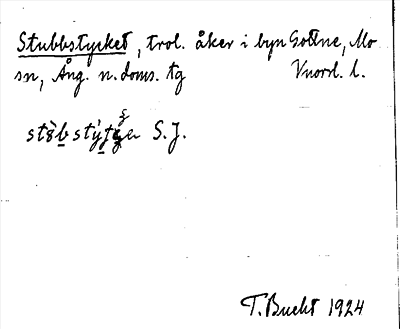 Stubbstycket, trol. åker i byn Gottne, Mo
sn, Ång. n. doms. tg Vnord. l.
S.J.
T. Bucht 1924